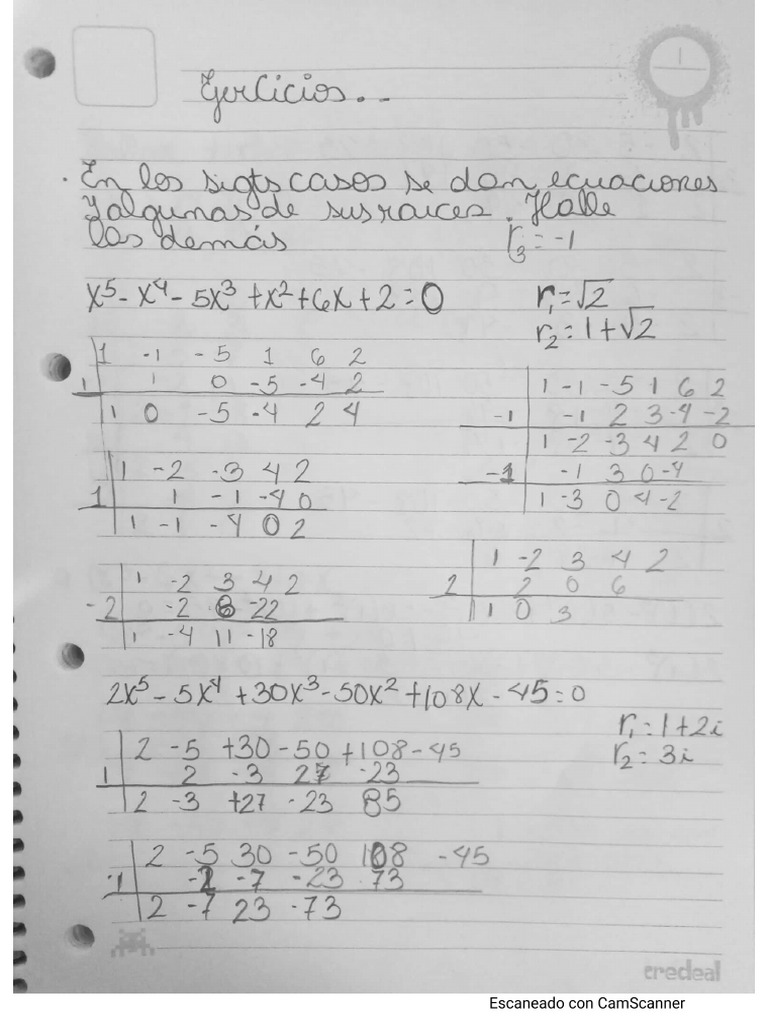 1
Ejercicios...
· En los sigts casos se dan ecuaciones
y algunas de sus raíces. Halle
las demás r₃ = -1
x⁵ - x⁴ - 5x³ + x² + 6x + 2 = 0 r₁ = √2
r₂ = 1 + √2
1 -1 -5 1 6 2
1 1 0 -5 -4 2
1 0 -5 -4 2 4
1 -1 -5 1 6 2
-1 -1 2 3 -4 -2
1 -2 -3 4 2 0
-1 -1 3 0 -4
1 -3 0 4 -2
1 -2 -3 4 2
1 1 -1 -4 0
1 -1 -4 0 2
1 -2 3 4 2
2 2 0 6
1 0 3
1 -2 3 4 2
-2 -2 8 -22
1 -4 11 -18
2x⁵ - 5x⁴ + 30x³ - 50x² + 108x - 45 = 0
r₁ = 1 + 2i
r₂ = 3i
2 -5 +30 -50 +108 -45
1 2 -3 27 -23
2 -3 +27 -23 85
2 -5 30 -50 108 -45
-1 -2 -7 -23 73
2 -7 23 -73
credeal
Escaneado con CamScanner